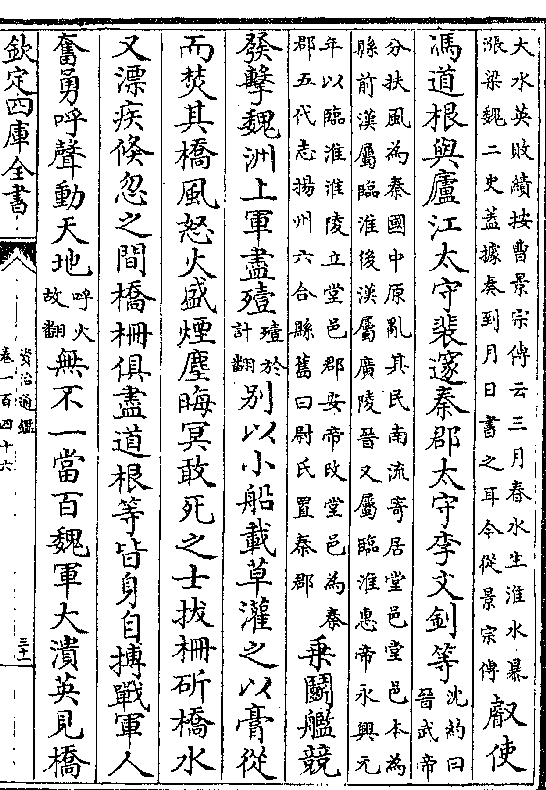 大水英敗績按曹景宗傳云三月春水生淮水暴
漲梁魏二史蓋據奏到月日書之耳今從景宗傳
叡使
馮道根與廬江太守裴邃秦郡太守李文釗等
沈約曰
晉武帝
分扶風為秦國中原亂其民南流寄居堂邑堂邑本為
縣前漢屬臨淮後漢屬廣陵晉又屬臨淮惠帝永興元
年以臨淮淮陵立堂邑郡安帝改堂邑為秦
郡五代志揚州六合縣舊曰尉氏置秦郡
乗鬭艦競
發擊魏洲上軍盡殪
殪於
計翻
别以小船載草灌之以膏從
而焚其橋風怒火盛煙塵晦冥敢死之士拔柵斫橋水
又漂疾倐忽之間橋柵俱盡道根等皆身自搏戰軍人
奮勇呼聲動天地
呼火
故翻
無不一當百魏軍大潰英見橋
欽定四庫全書
資治通鑑
卷一百四十六
三十一